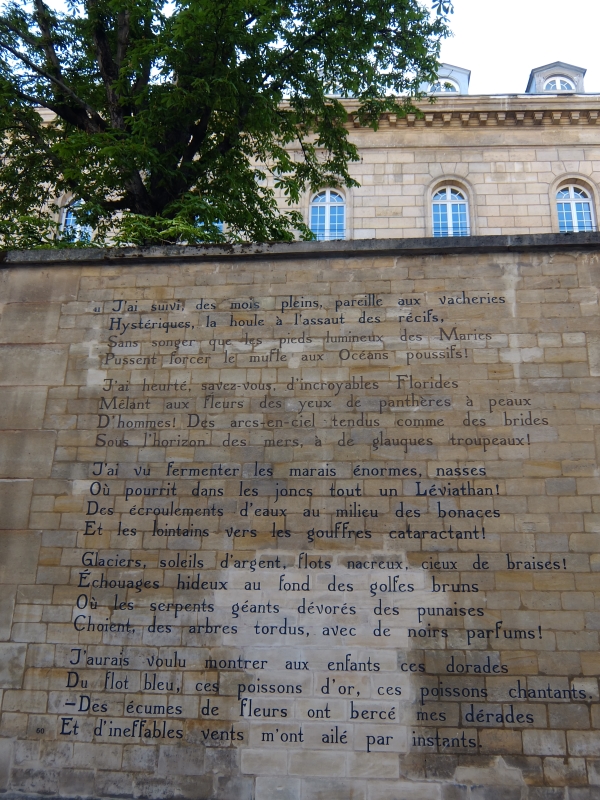 41 J'ai suivi, des mois pleins, pareille aux vacheries
Hystériques, la houle à l'assaut des récifs,
Sans songer que les pieds lumineux des Maries
Pussent forcer le mufle aux Océans poussifs!
J'ai heurté, savez-vous, d'incroyables Florides
Mêlant aux fleurs des yeux de panthères à peaux
D'hommes! Des arcs-en-ciel tendus comme des brides
Sous l'horizon des mers, à de glauques troupeaux!
J'ai vu fermenter les marais énormes, nasses
Où pourrit dans les joncs tout un Léviathan!
Des écroulements d'eaux au milieu des bonaces
Et les lointains vers les gouffres cataractant!
Glaciers, soleils d'argent, flots nacreux, cieux de braises!
Échouages hideux au fond des golfes bruns
Où les serpents géants dévorés des punaises
Choient, des arbres tordus, avec de noirs parfums!
J'aurais voulu montrer aux enfants ces dorades
Du flot bleu, ces poissons d'or, ces poissons chantants.
–Des écumes de fleurs ont bercé mes dérades
60 Et d'ineffables vents m'ont ailé par instants.